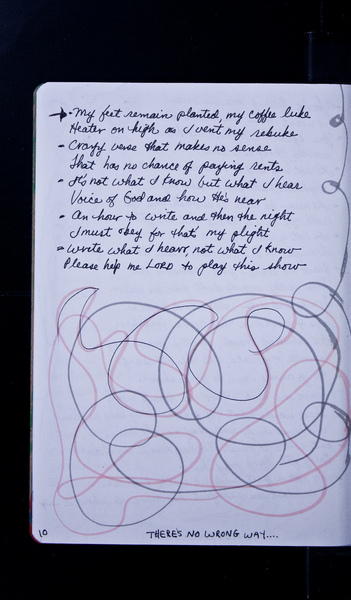 → • My feet remain planted, my coffee luke
Heater on high as I vent my rebuke
- Crazy verse that makes no sense
That has no chance of paying rents
- It's not what I know but what I hear
Voice of God and how He's near
- An hour to write and then the night
I must obey for that's my plight
- Write what I hear, not what I know
Please help me LORD to play this show
10
THERE'S NO WRONG WAY....